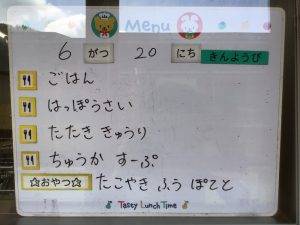 Menu
6 がつ 20 にち きんようび
ごはん
はっぽうさい
たたき きゅうり
ちゅうか すーぷ
☆おやつ☆ たこやき ふう ぽてと
Tasty Lunch Time